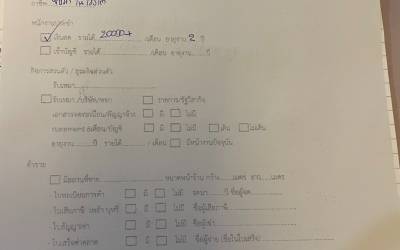 อาชีพ
พนักงานประจำ
เงินสด รายได้ 20000+ /เดือน อายุงาน 2 ปี
เข้าบัญชี รายได้ /เดือน อายุงาน ปี
กิจการส่วนตัว / ธุรกิจส่วนตัว
รับเหมา
รับเหมา /บริษัท/หจก ราชการ/รัฐวิสาหกิจ
เอกสารจดทะเบียน/สัญญาจ้าง มี ไม่มี
statement เดือน/บัญชี มี ไม่มี เดิน ไม่เดิน
อายุงาน ปี รายได้ /เดือน มีหน้างานปัจจุบัน
ค้าขาย
มีสถานที่ขาย ขนาดหน้าร้าน กว้าง เมตร ยาว เมตร
ใบทะเบียนการค้า มี ไม่มี ปี ชื่อผู้จด
ใบเสียภาษี มี ไม่มี ชื่อผู้เสียภาษี
ใบสัญญาเช่า มี ไม่มี ชื่อผู้เช่า
ใบเสร็จค่าตลาด มี ไม่มี ชื่อผู้จ่าย (ชื่อในใบเสร็จ)